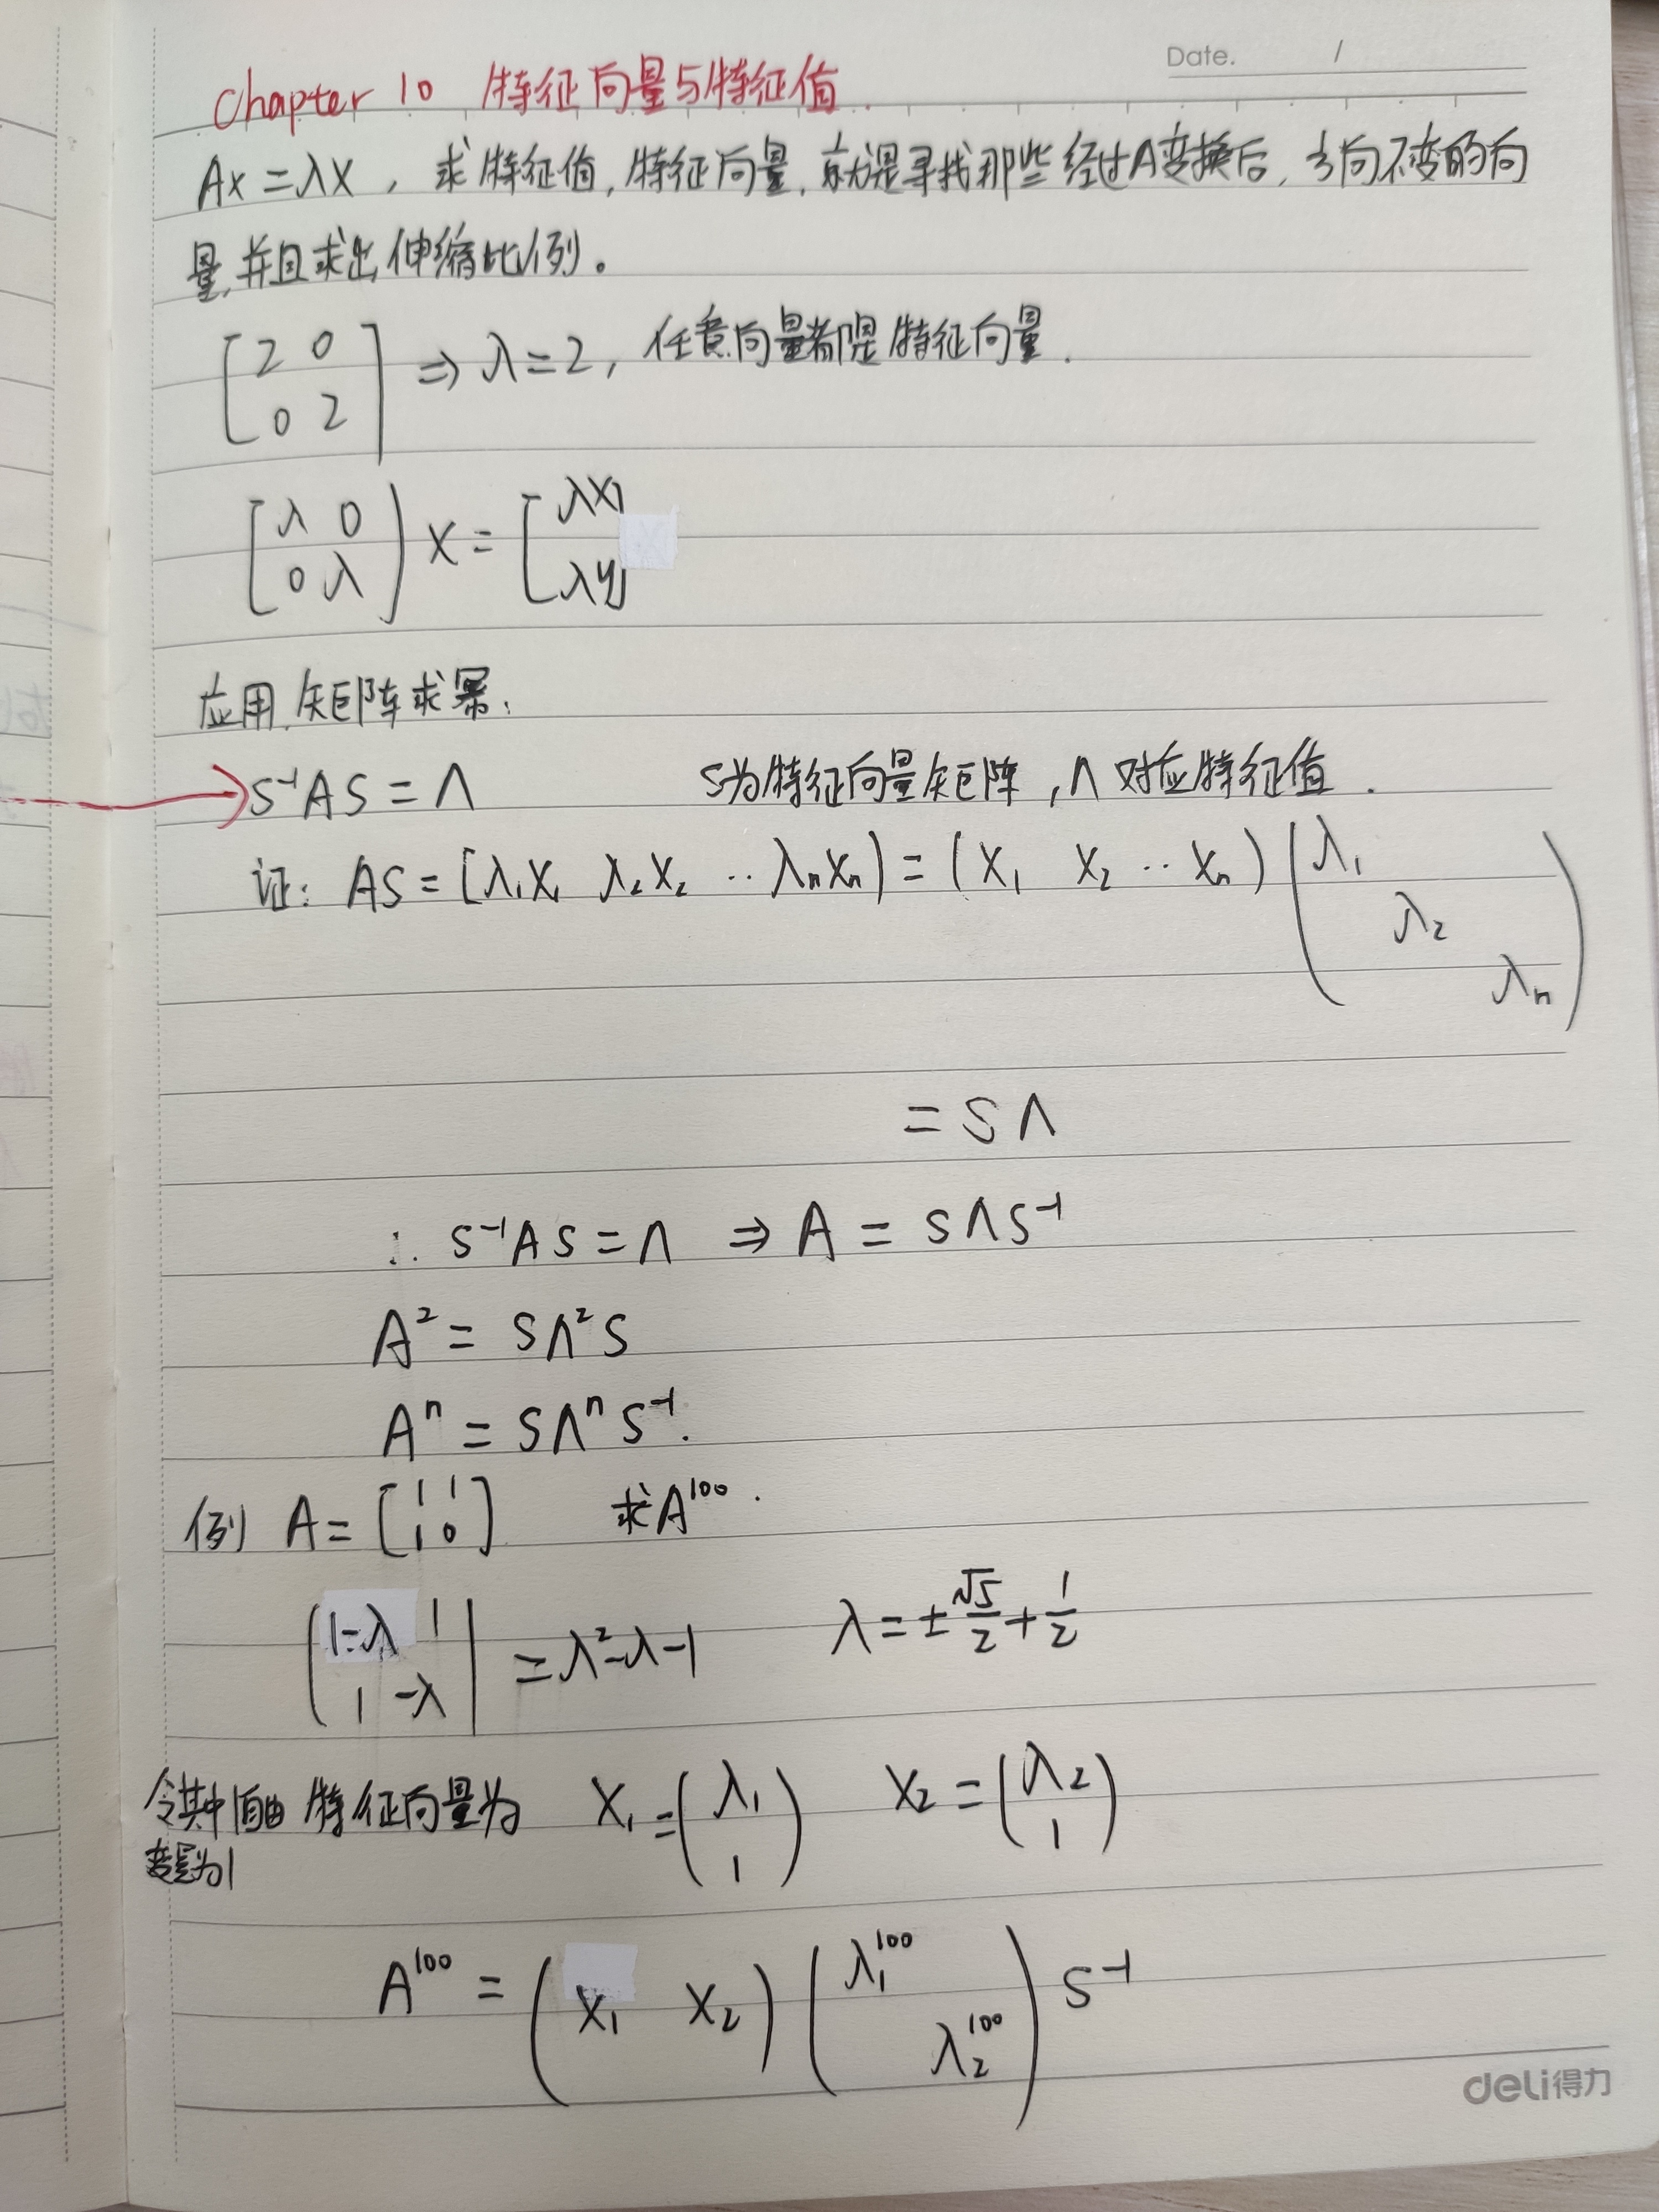 Date. /
Chapter 10 特征向量与特征值.
Ax=λx, 求特征值,特征向量,就是寻找那些经过A变换后,方向不变的向
量,并且求出伸缩比例。
[2 0
0 2] ⇒ λ=2, 任意向量都是特征向量.
[λ 0
0 λ) x = [λx
λy]
应用.矩阵求幂.
S⁻¹AS=Λ S为特征向量矩阵,Λ对应特征值.
证: AS=[λ₁x₁ λ₂x₂ ·· λₙxₙ)=(x₁ x₂ ·· xₙ)(λ₁
λ₂
λₙ)
= SΛ
∴ S⁻¹AS=Λ ⇒ A = SΛS⁻¹
A² = SΛ²S
Aⁿ = SΛⁿS⁻¹.
例 A=[1 1
1 0] 求A¹⁰⁰.
|1-λ 1
1 -λ| =λ²-λ-1 λ=±√5/2+1/2
令其中自由 特征向量为 x₁=(λ₁
1) x₂=(λ₂
1)
变量为1
A¹⁰⁰ = (x₁ x₂)(λ₁¹⁰⁰
λ₂¹⁰⁰) S⁻¹
deli得力